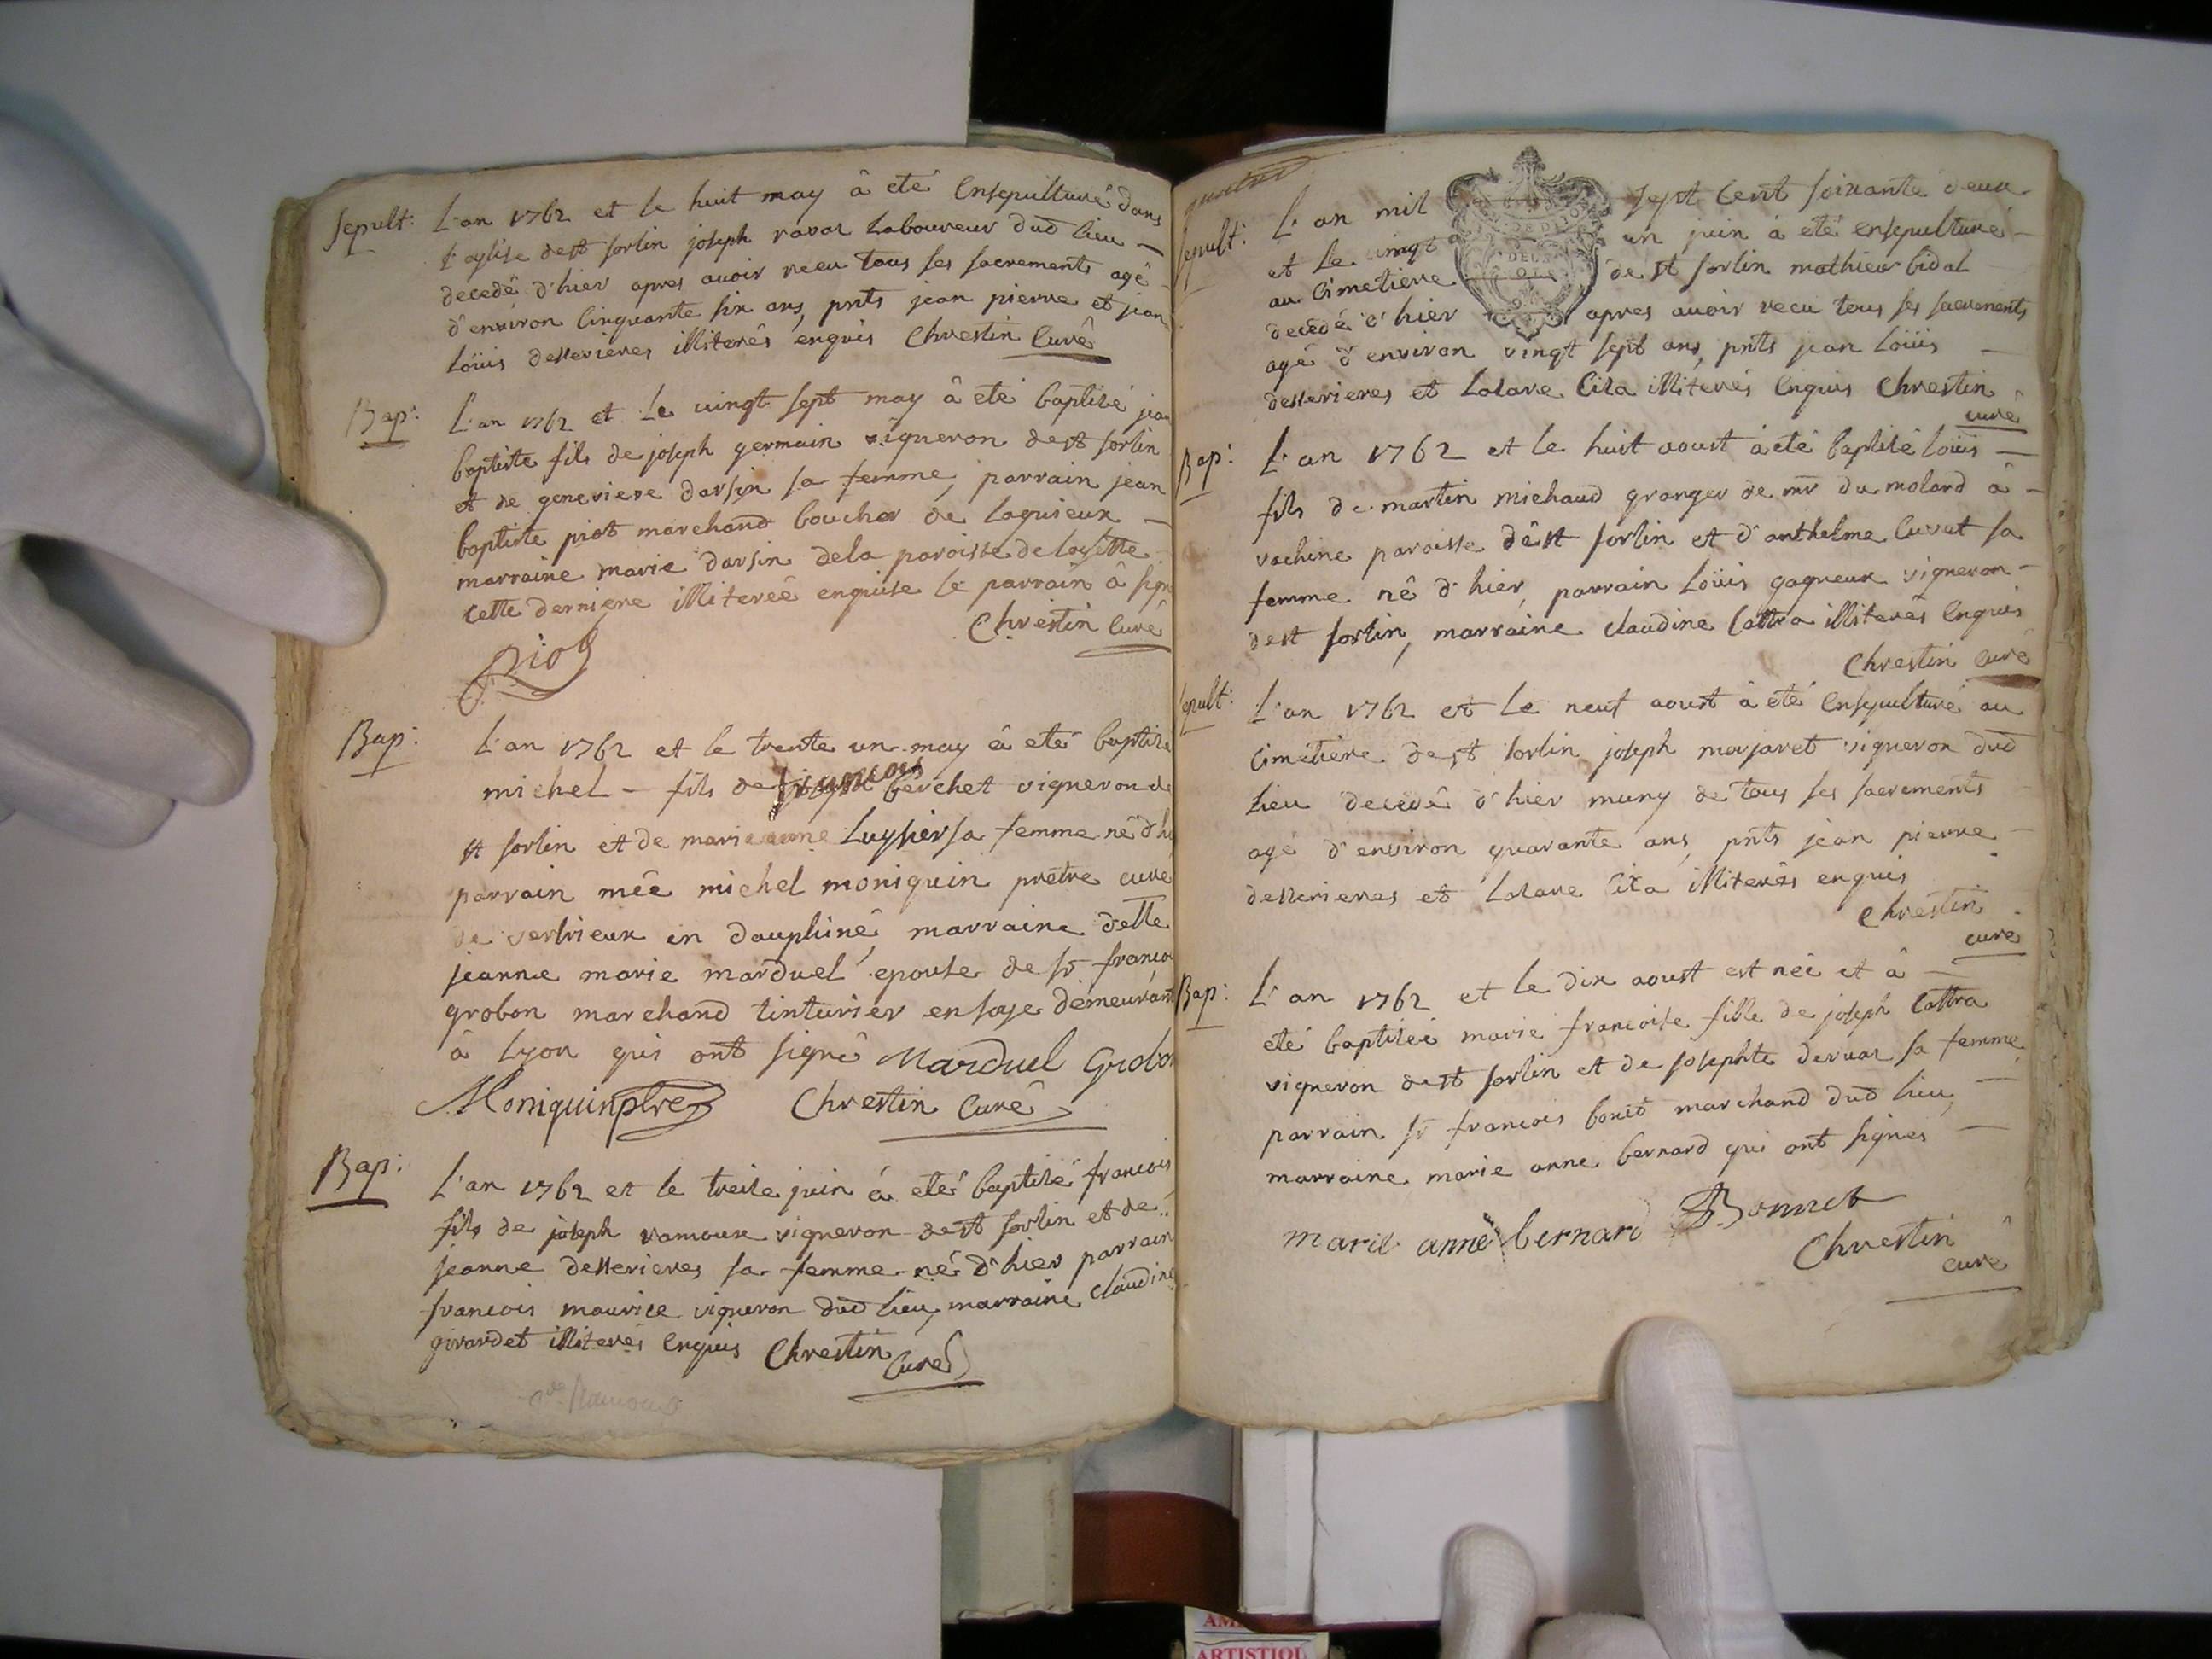 Sepult: L'an 1762 et le huit may â eté Ensepulturé dans
l'eglise de st sorlin joseph ravat Laboureur dud lieu
decedé d'hier apres auoir receu tous ses sacrements agé
d'environ Cinquante six ans, pnts jean pierre et jean
Loüis desserieres illiterés enquis Chrestin Curé
Bap: L'an 1762 et Le uingt sept may â eté baptisé jean
baptiste fils de joseph germain vigneron de st sorlin
et de genevieve darsin sa femme, parrain jean
baptiste piot marchand boucher de lagnieux
marraine marie darsin de la paroisse de
cette derniere illitereé enquise le parrain â signé
Chrestin Curé
Piot
Bap: L'an 1762 et le trente un may â eté baptisé
michel - fils de francois berchet vigneron de
st sorlin et de marie anne Luyssier sa femme né d'h
parrain mre michel moniquin prêtre curé
de vertrieux en dauphiné, marraine delle
jeanne marie marduel epouse de sr francois
grobon marchand tinturier en soye demeurant
â Lyon qui ont signé Marduel Grobon
Moniquin ptre Chrestin Curé
Bap: L'an 1762 et le treise juin â eté baptisé francois
fils de joseph ramoux vigneron de st sorlin et de
jeanne desserieres sa femme né d'hier parrain
francois maurice vigneron dud lieu, marraine claudine
girardet illiterés enquis Chrestin
Curé
Ramoux
Sepult: L'an mil sept Cent soixante deux
et Le uingt un juin â eté ensepulturé
au Cimetiere de st sorlin mathieu bidal
decedé d'hier apres auoir receu tous ses sacrements
agé d'environ vingt sept ans, pnts jean Loüis
desserieres et Lazare Cita illiterés Enquis Chrestin
curé
Bap: L'an 1762 et le huit aoust â eté baptisé Loüis
fils de martin michaud granger de mr du molard â
vachine paroisse de st sorlin et d'anthelme Curet sa
femme né d'hier, parrain Loüis gagneux vigneron
de st sorlin, marraine claudine Cattra illiterés Enquis
Chrestin Curé
Sepult: L'an 1762 et Le neuf aoust â eté Ensepulturé au
Cimetiere de st sorlin joseph marjaret vigneron dud
Lieu decedé d'hier muny de tous ses sacrements
agé d'environ quarante ans, pnts jean pierre
desserieres et Lazare Cita illiterés enquis
Chrestin
curé
Bap: L'an 1762 et le dix aoust est née et â
eté baptisée marie francoise fille de joseph Cattra
vigneron de st sorlin et de josephte dervat sa femme,
parrain sr francois bonet marchand dud lieu,
marraine marie anne bernard qui ont signés
marie anne bernard Bonnet
Chrestin
curé